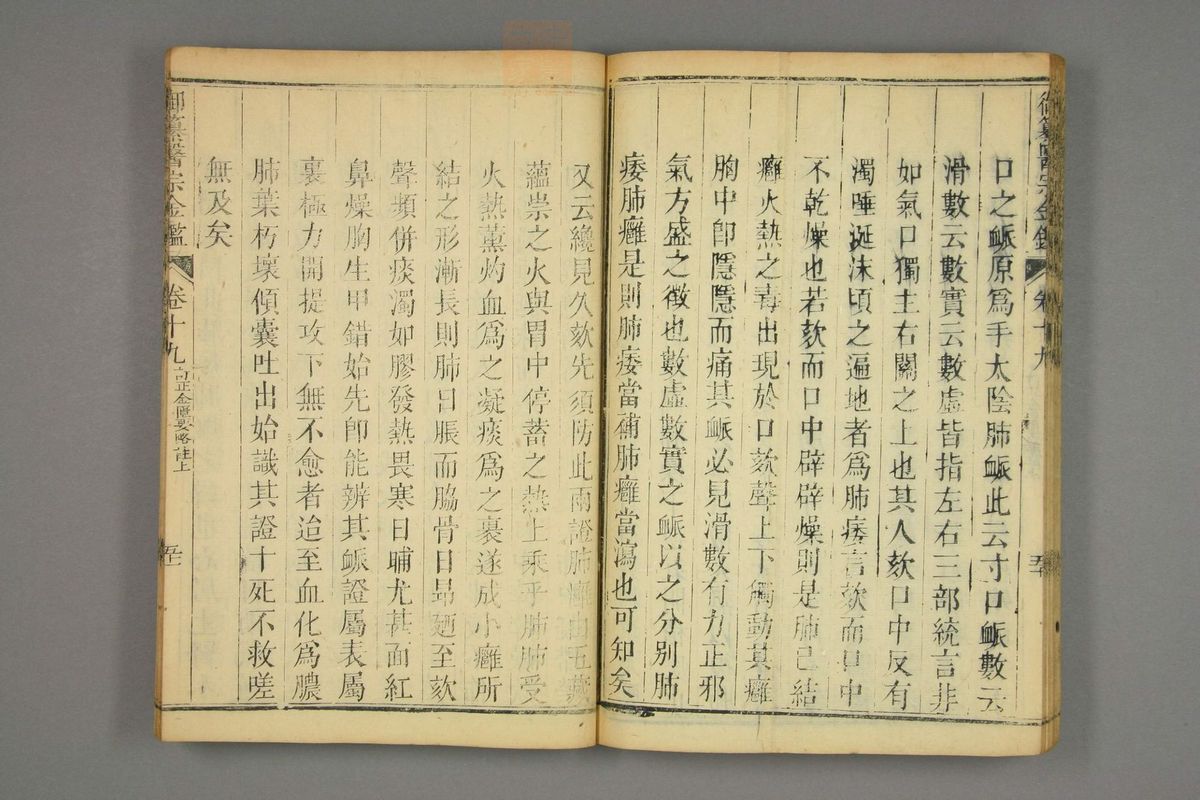 口之脈原爲手太陰肺脈此云寸口脈數云
滑數云數實云數虛皆指左右三部統言非
如氣口獨主右關之上也其人欬口中反有
濁唾涎沫頃之遍地者爲肺痿言欬而口中
不乾燥也若欬而口中辟辟燥則是肺已結
癰火熱之毒出現於口欬聲上下觸動其癰
胸中卽隱隱而痛其脈必見滑數有力正邪
氣方盛之徵也數虛數實之脈以之分別肺
痿肺癰是則肺痿當補肺癰當瀉也可知矣
御纂醫宗金鑑 卷十九
又云纔見久欬先須防此兩證肺癰由五臟
蘊崇之火與胃中停蓄之熱上乘乎肺肺受
火熱薰灼血爲之凝痰爲之裹遂成小癰所
結之形漸長則肺日脹而脇骨日昂廼至欬
聲頻併痰濁如膠發熱畏寒日晡尤甚面紅
鼻燥胸生甲錯始先卽能辨其脈證屬表屬
裏極力開提攻下無不愈者迨至血化爲膿
肺葉朽壞傾囊吐出始識其證十死不救嗟
無及矣
御纂醫宗金鑑 卷十九 訂正金匱要略註上